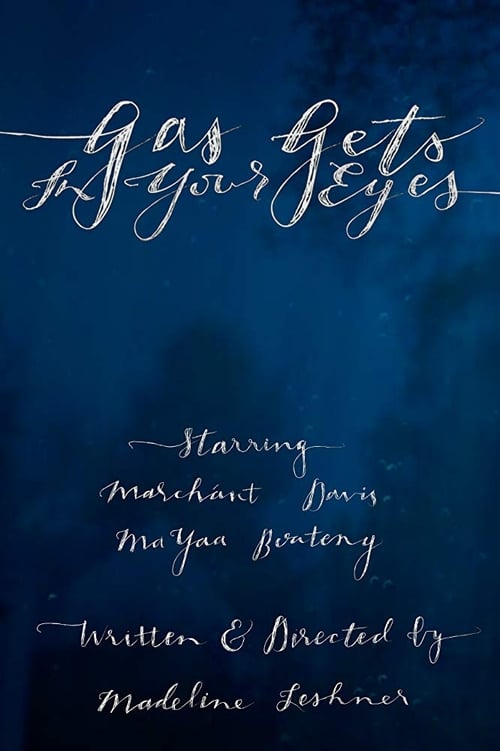 Gas Gets
In Your Eyes
Starring
Marchánt Davis
MaYaa Boateng
Written & Directed by
Madeline Leshner